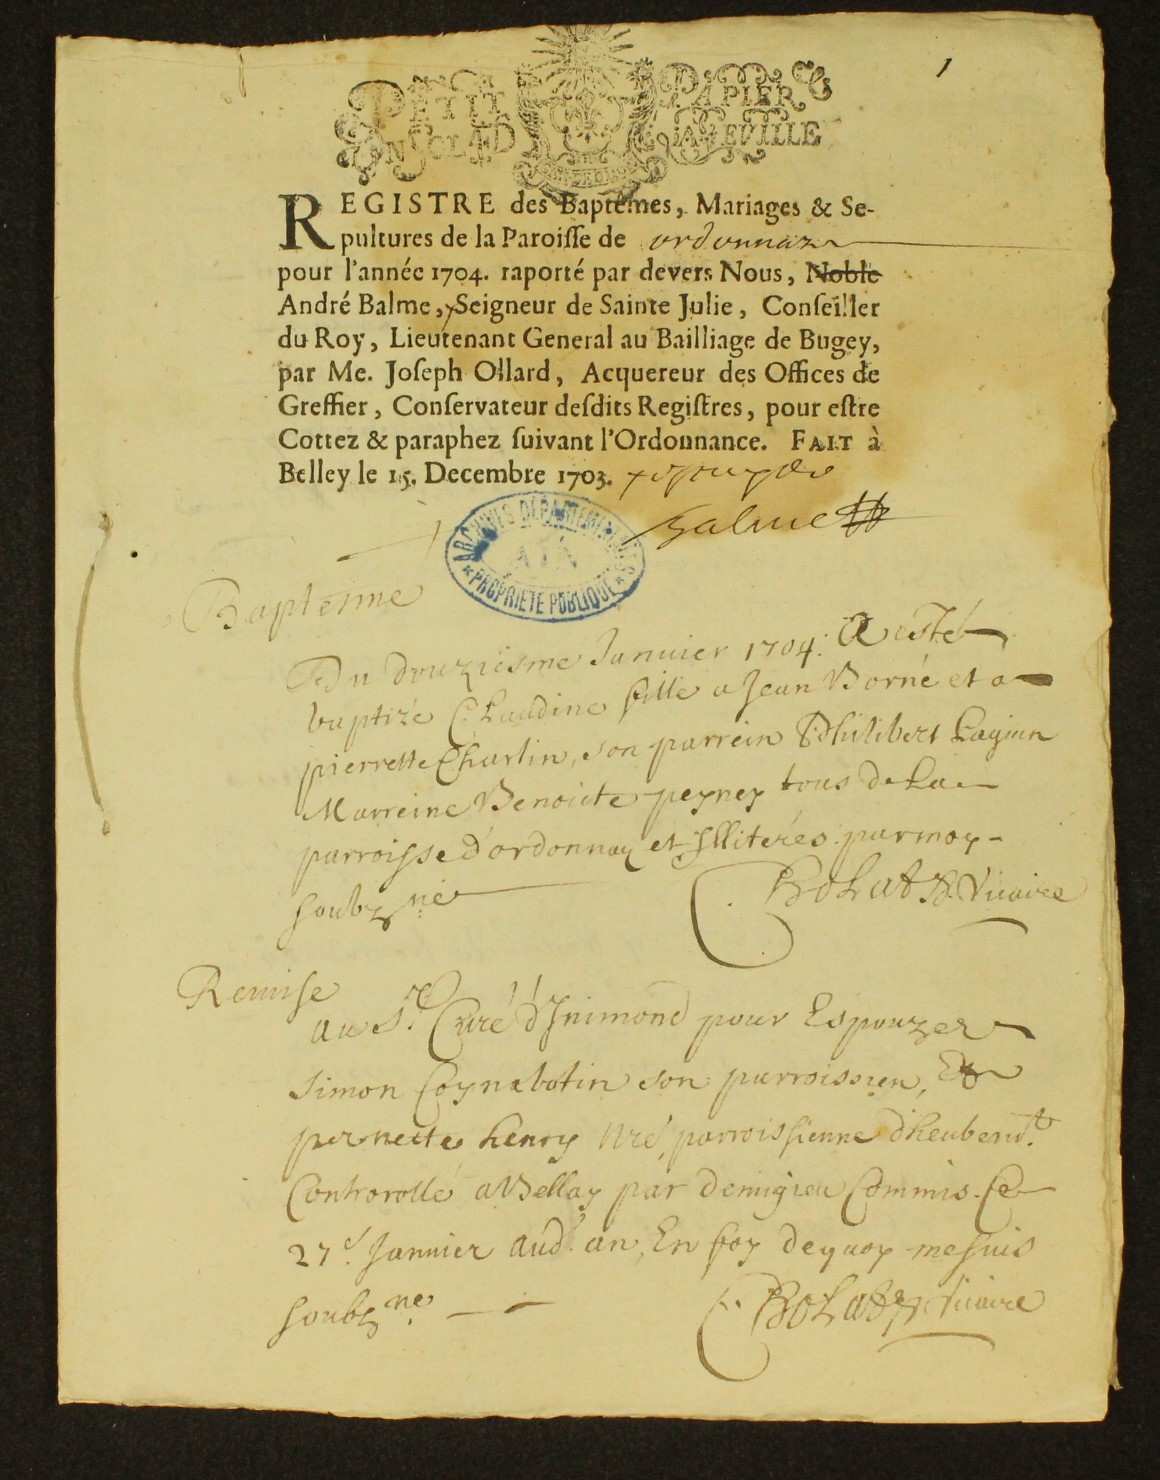 1
PETIT PAPIER
REGISTRE des Baptêmes, Mariages & Se-
pultures de la Paroisse de ordonnaz
pour l'année 1704. raporté par devers Nous, Noble
André Balme, Seigneur de Sainte Julie, Conseiller
du Roy, Lieutenant General au Bailliage de Bugey,
par Me. Joseph Ollard, Acquereur des Offices de
Greffier, Conservateur desdits Registres, pour estre
Cottez & paraphez suivant l'Ordonnance. FAIT à
Belley le 15. Decembre 1703.
Balme
ARCHIVES DÉPARTEMENTALES
AIN
* PROPRIÉTÉ PUBLIQUE *
Baptesme
Du douziesme Janvier 1704. A esté
baptizé Claudine fille a Jean Borné et a
pierrette Charlin, son parrein Philibert Lagien
Marreine Benoicte peyney tous de La
parroisse d'ordonnaz et Illiterés par moy
soubzné
Vicaire
Remise
au Sr. Curé d'Inimond pour Espouzer
Simon Coynabotin son parroissien, Et
pernette henry parroissienne
Controrollé a Bellay par demigieu Commis. Ce
27e. Janvier aud. an, En foy dequoy me suis
soubzné
Vicaire